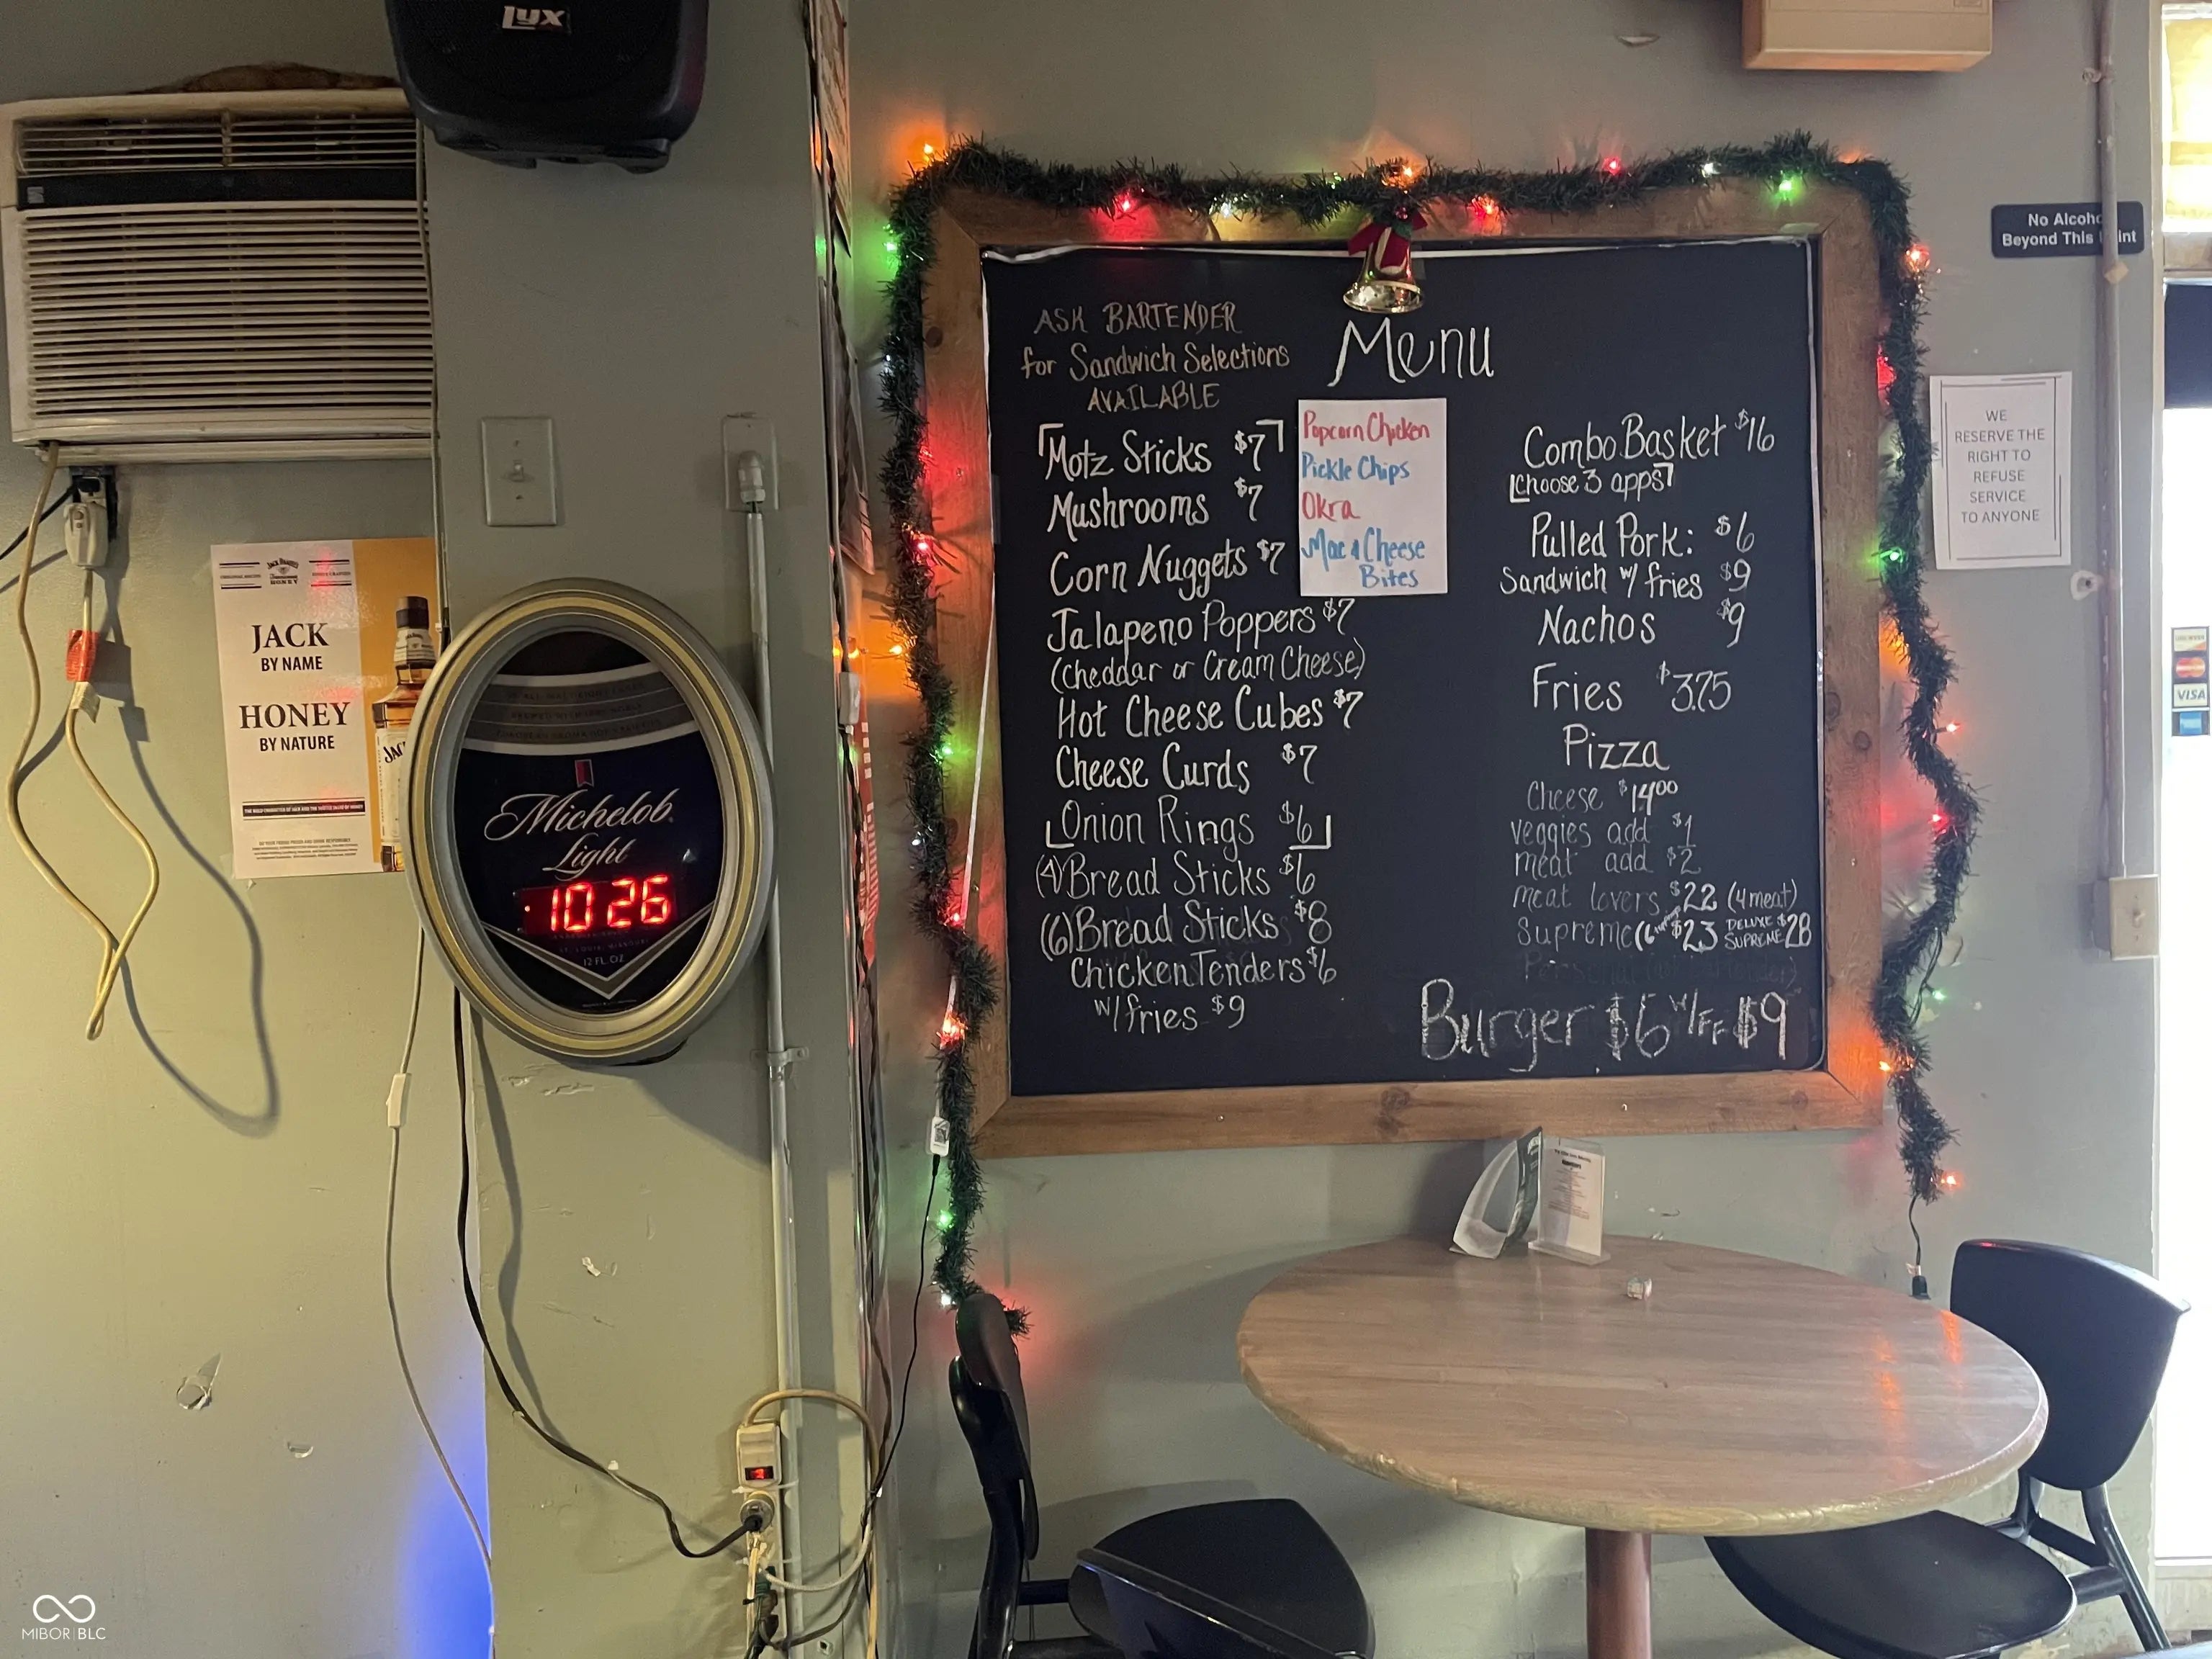 LYX
JACK
BY NAME
HONEY
BY NATURE
JACK DANIEL'S
HONEY
Michelob
Light
10 26
12 FL. OZ
ASK BARTENDER
for Sandwich Selections
AVAILABLE
Menu
Motz Sticks $7
Mushrooms $7
Corn Nuggets $7
Jalapeno Poppers $7
(Cheddar or Cream Cheese)
Hot Cheese Cubes $7
Cheese Curds $7
Onion Rings $6
(4) Bread Sticks $6
(6) Bread Sticks $8
Chicken Tenders $6
w/fries $9
Popcorn Chicken
Pickle Chips
Okra
Mac & Cheese
Bites
Combo Basket $16
[Choose 3 apps]
Pulled Pork: $6
Sandwich w/ fries $9
Nachos $9
Fries $3.75
Pizza
Cheese $14.00
veggies add $1
meat add $2
meat lovers $22 (4 meat)
Supreme $23 DELUXE SUPREME $28
Burger $6 w/FF $9
No Alcoho
Beyond This int
WE
RESERVE THE
RIGHT TO
REFUSE
SERVICE
TO ANYONE
VISA
MIBOR | BLC